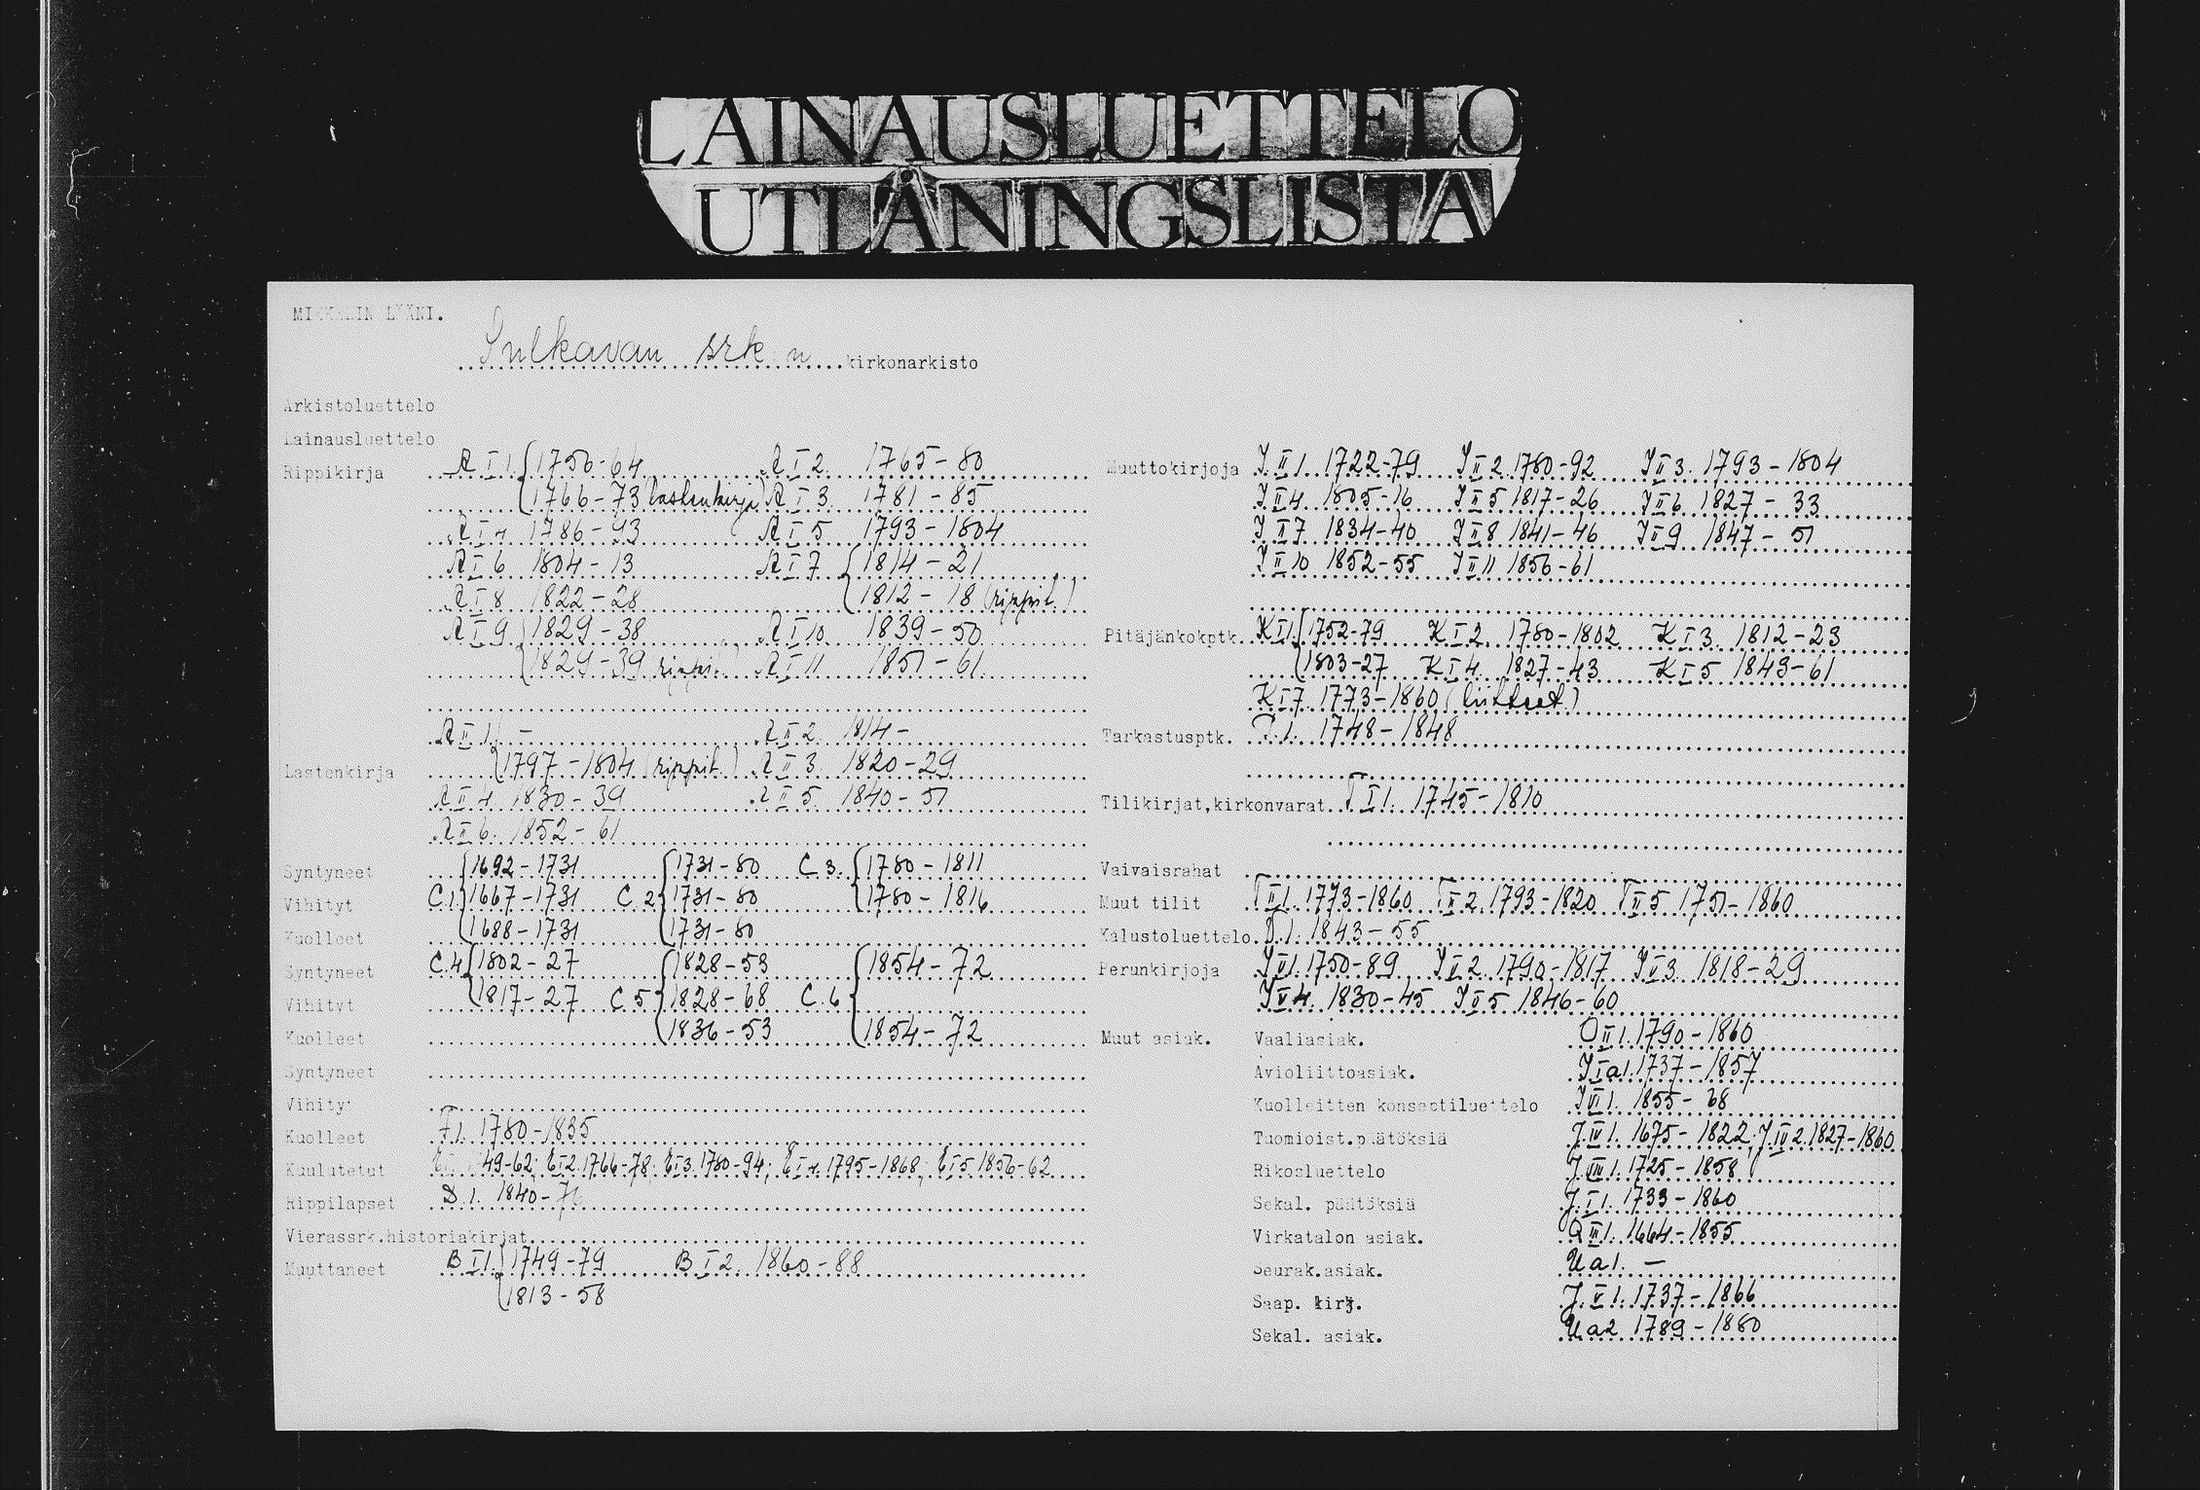 LAINAUSLUETTELO
UTLÅNINGSLISTA
MIKKELIN LÄÄNI.
Sulkavan srk:n kirkonarkisto
Arkistoluettelo
Lainausluettelo
Rippikirja A I 1. {1750-64 A I 2. 1765-80
{1766-73 (lastenkirja) A I 3. 1781-85
A I 4 1786-93 A I 5 1793-1804
A I 6 1804-13 A I 7 {1814-21
A I 8 1822-28 {1812-18 (rippit.)
A I 9 {1829-38 A I 10 1839-50
{1829-39 rippit. A I 11 1851-61
A II 1 { - A II 2. 1814-
Lastenkirja {1797-1804 (rippit.) A II 3. 1820-29
A II 4. 1830-39 A II 5 1840-51
A II 6. 1852-61
Syntyneet {1692-1731 {1731-80 C 3. {1780-1811
Vihityt C.1 {1667-1731 C 2 {1731-80 {1780-1816
Kuolleet {1688-1731 {1731-80
Syntyneet C.4 {1802-27 {1828-53 {1854-72
Vihityt {1817-27 C.5 {1828-68 C.6 {
Kuolleet {1836-53 {1854-72
Syntyneet
Vihityt
Kuolleet F1. 1780-1835
Kuulutetut 49-62; E I 2. 1766-78; E I 3. 1780-94; E I 4. 1795-1868; E I 5 1856-62
Rippilapset D.1. 1840-
Vierassrk.historiakirjat
Muuttaneet B I 1. {1749-79 B I 2. 1860-88
{1813-58
Muuttokirjoja J II 1. 1722-79 J II 2. 1780-92 J II 3. 1793-1804
J II 4. 1805-16 J II 5 1817-26 J II 6 1827-33
J II 7 1834-40 J II 8 1841-46 J II 9 1847-51
J II 10 1852-55 J II 11 1856-61
Pitäjänkokptk. K I 1. {1752-79 K I 2. 1780-1802 K I 3. 1812-23
{1803-27 K I 4. 1827-43 K I 5 1843-61
K I 7 1773-1860 (liitteet)
Tarkastusptk. 1. 1748-1848
Tilikirjat,kirkonvarat T I 1. 1745-1810
Vaivaisrahat
Muut tilit T II 1. 1773-1860 T II 2. 1793-1820 T II 5 1751-1860
Kalustoluettelo. 1. 1843-55
Perunkirjoja J V 1. 1750-89 J V 2. 1790-1817 J V 3. 1818-29
J V 4. 1830-45 J V 5 1846-60
Muut asiak. Vaaliasiak. O II 1. 1790-1860
Avioliittoasiak. J I a 1. 1737-1857
Kuolleitten konseptiluettelo J VI 1. 1855-68
Tuomioist.päätöksiä J IV 1. 1675-1822, J IV 2. 1827-1860
Rikosluettelo J VIII 1. 1725-1858
Sekal. päätöksiä J I 1. 1733-1860
Virkatalon asiak. O III 1. 1664-1855
Seurak.asiak. U a 1. -
Saap. kirj. J V 1. 1737-1866
Sekal. asiak. U a 2 1789-1880